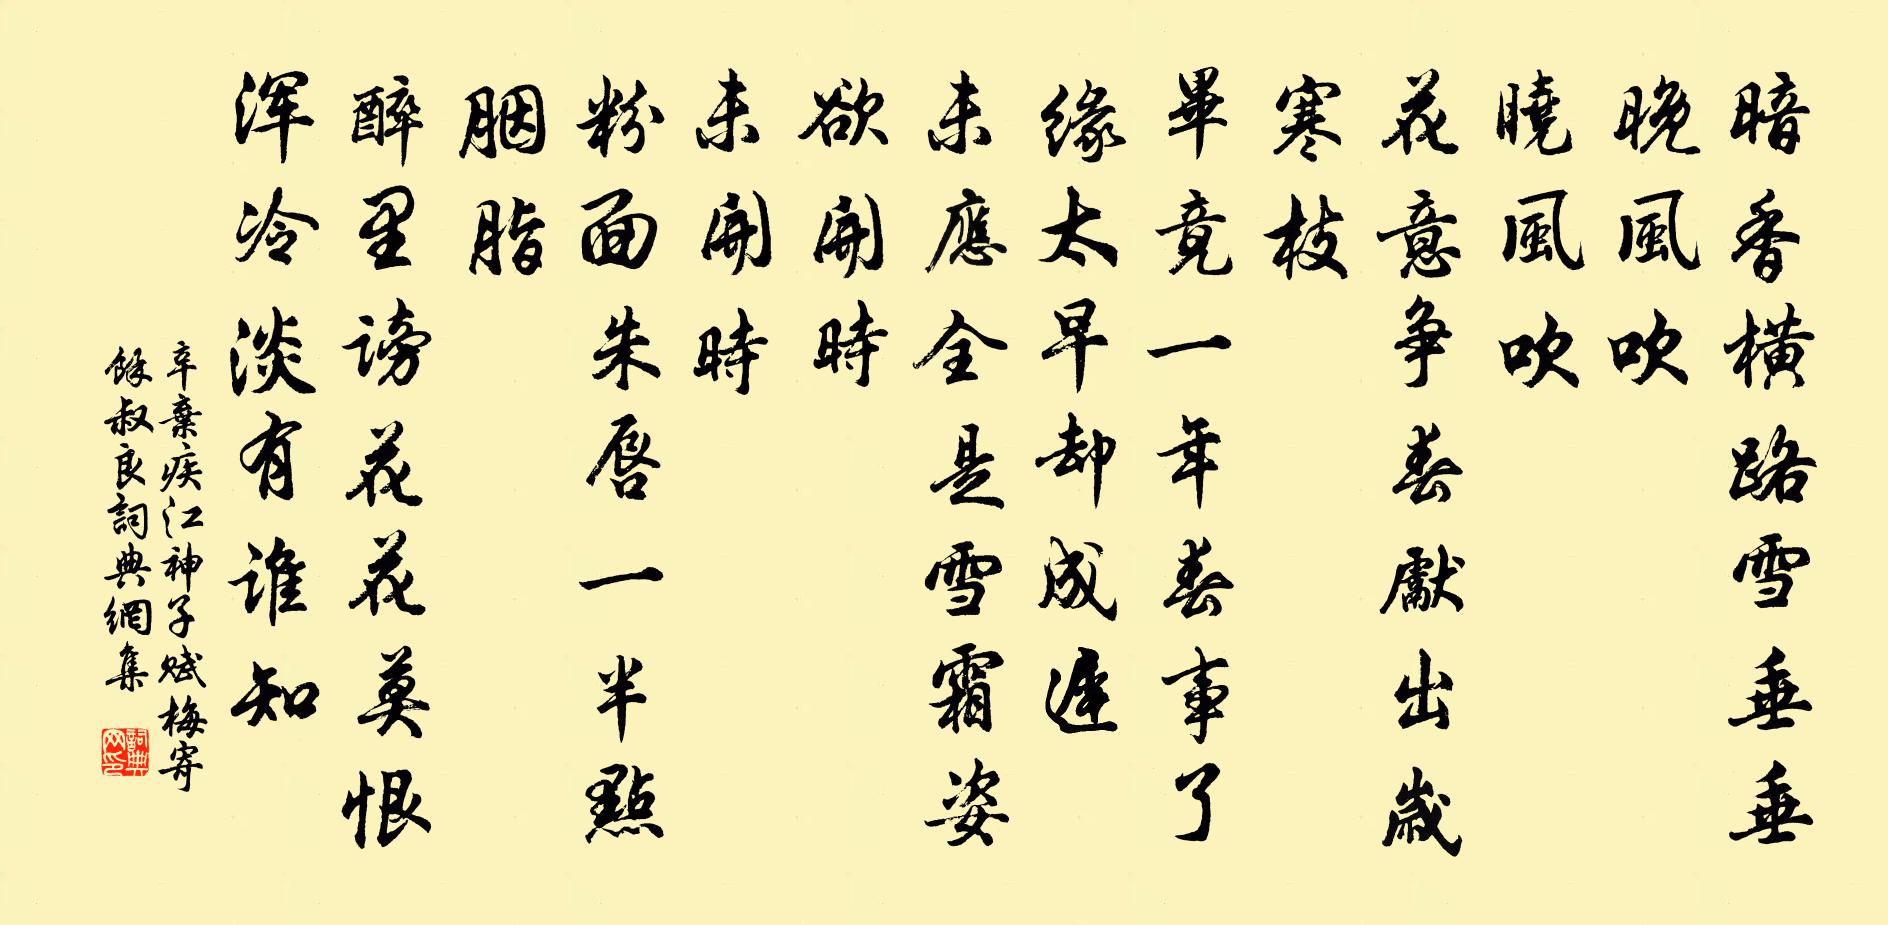 暗香橫路雪垂垂
晚風吹
曉風吹
花意爭春獻出歲
寒枝
畢竟一年春事了
緣太早却成遲
未應全是雪霜姿
欲開時
未開時
粉面朱唇一半點
胭脂
醉里謗花花莫恨
渾冷淡有谁知
辛棄疾江神子赋梅寄
餘叔良詞典網集
詞典
网印